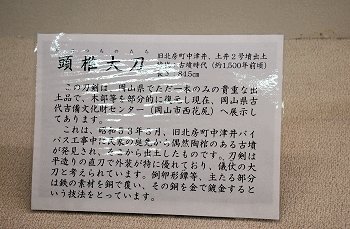 頭椎大刀
旧北房町中津井、土井2号墳出土
古墳時代(約1500年前頃)
この刀剣は、岡山県でただ一本のみの貴重な出
土品で、木部等を部分的に復元し現在、岡山県古
代吉備文化財センター(岡山市西花尻)へ展示し
てあります。
これは、昭和53年3月、旧北房町中津井バイ
パス工事中に民家の庭先から偶然陶棺のある古墳
が発見され、なかから出土したものです。刀剣は
平造りの直刀で外装が特に優れており、儀仗の大
刀と考えられています。倒卵形鐔等、主たる部分
は鉄の素材を銅で覆い、その銅を金で鍍金すると
いう技法をとっています。